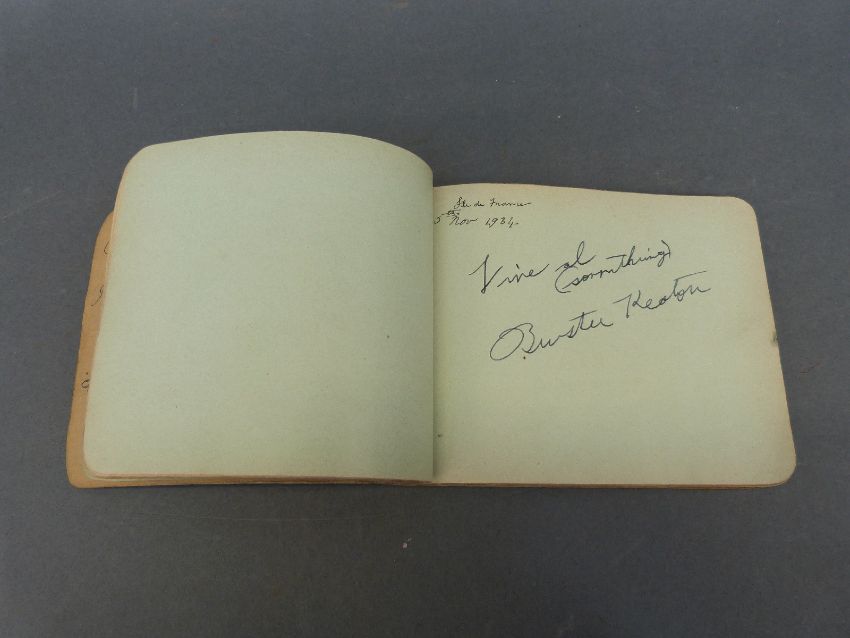 Ile de France
5th Nov 1934.
Vive al
(somthing)
Buster Keaton